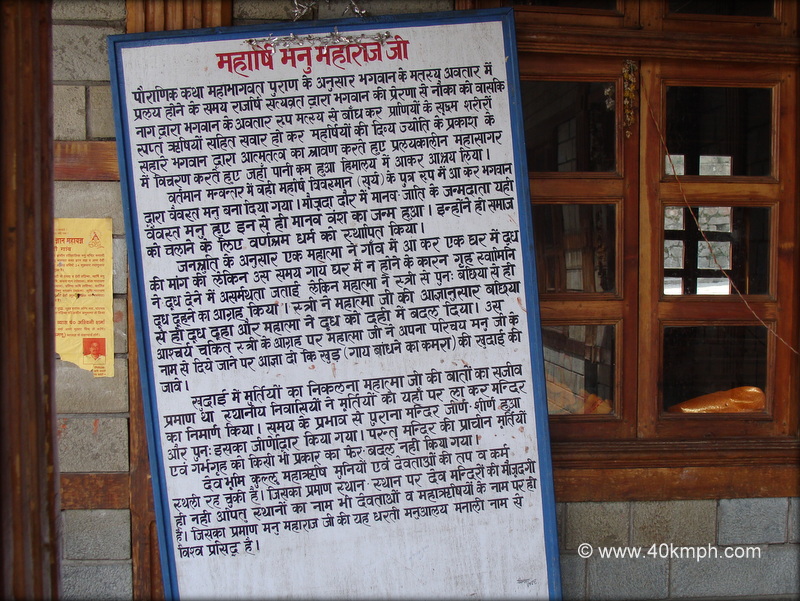 महर्षि मनु महाराज जी
पौराणिक कथा महाभागवत पुराण के अनुसार भगवान के मतस्य अवतार में
प्रलय होने के समय राजर्षि सत्यव्रत द्वारा भगवान की प्रेरणा से नौका की वासकि
नाग द्वारा भगवान के अवतार रूप मत्स्य से बाँध कर प्राणियों के सूक्ष्म शरीरों
सप्त ऋषियों सहित सवार हो कर महर्षियों की दिव्य ज्योति के प्रकाश के
सहारे भगवान द्वारा आत्मतत्व का श्रावण करते हुए प्रलयकालीन महासागर
में विचरण करते हुए जहाँ पानी कम हुआ हिमालय में आकर आश्रय लिया।
वर्तमान मन्वन्तर में वही महर्षि विवस्मान (सूर्य) के पुत्र रूप में आ कर भगवान
द्वारा वैवस्त मनु बना दिया गया। मौजूदा दौर में मानव-जाति के जन्मदाता यही
वैवस्त मनु हुए इन से ही मानव वंश का जन्म हुआ। इन्होंने ही समाज
को चलाने के लिए वर्णश्रम धर्म को स्थापित किया।
जनश्रति के अनुसार एक महात्मा ने गाँव में आ कर एक घर में दूध
की मांग की लेकिन उस समय गाय घर में न होने के कारन गृह स्वामिनि
ने दूध देने में असमर्थता जताई लेकिन महात्मा ने स्त्री से पुनः बछिया से ही
दूध दुहने का आग्रह किया। स्त्री ने महात्मा जी की आज्ञानुसार बछिया
से ही दूध दूहा और महात्मा ने दूध को दही में बदल दिया। उस
आश्चर्य चकित स्त्री के आग्रह पर महात्मा जी ने अपना परिचय मनु जी के
नाम से दिये जाने पर आज्ञा दी कि खुड (गाय बांधने का कमरा) की खुदाई की
जावे।
खुदाई में मूर्तियों का निकलना महात्मा जी की बातों का सजीव
प्रमाण था स्थानीय निवासियों ने मूर्तियों को यहाँ पर ला कर मन्दिर
का निर्माण किया। समय के प्रभाव से पुराना मन्दिर जीर्ण-शीर्ण हुआ
और पुनः इसका जीर्णोद्वार किया गया। परन्तु मन्दिर की प्राचीन मूर्तियों
एवं गर्भगृह को किसी भी प्रकार का फेर-बदल नही किया गया।
देव भूमि कुल्लु महाऋषि मुनियों एवं देवताओं की तप व कर्म
स्थली रह चुकी है। जिसका प्रमाण स्थान-स्थान पर देव मन्दिरों की मौजूदगी
ही नही अपितु स्थानों का नाम भी देवताओं व महाऋषियों के नाम पर ही
है। जिसका प्रमाण मनु महाराज जी की यह धरती मनुआलय मनाली नाम से
विश्व प्रसिद्व है।
© www.40kmph.com